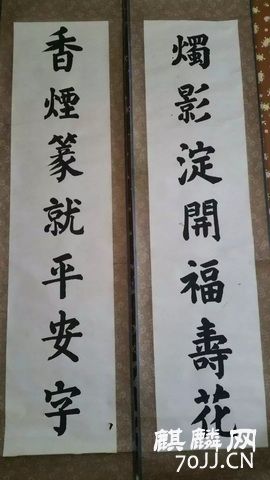 燭影淀開福壽花
香煙篆就平安字
麒麟网
70JJ.CN